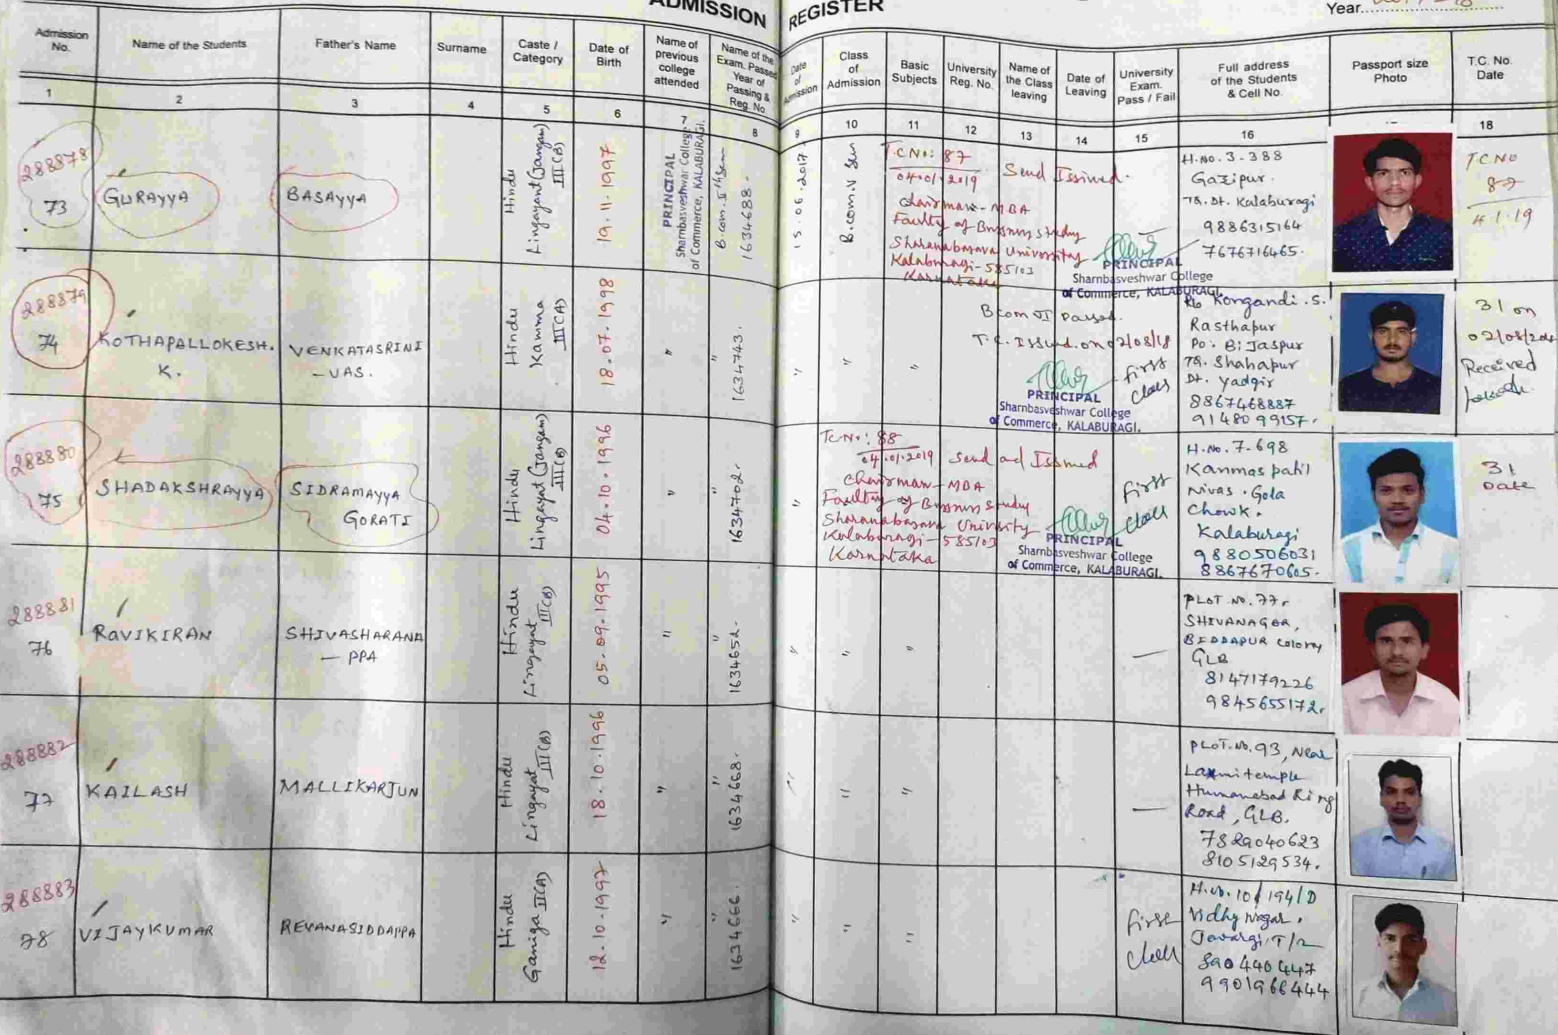 ADMISSION REGISTER
Year
Admission No.
Name of the Students
Father's Name
Surname
Caste / Category
Date of Birth
Name of previous college attended
Name of the Exam. Passed Year of Passing & Reg. No.
Date of Admission
Class of Admission
Basic Subjects
University Reg. No.
Name of the Class leaving
Date of Leaving
University Exam. Pass / Fail
Full address of the Students & Cell No.
Passport size Photo
T.C. No. Date
1 2 3 4 5 6 7 8 9 10 11 12 13 14 15 16 18
288878
73
GURAYYA
BASAYYA
Hindu
Lingayant (Jangam)
III (B)
19.11.1997
PRINCIPAL
Sharnbasveshwar College
of Commerce, KALABURAGI.
1634688-
15.06.2017
B.com.V Sem
T.C No: 87
04.01.2019
Send Issued.
Chairman-MBA
Faculty of Bussness study
Sharanabasava University
Kalaburagi-585103
Karnataka
PRINCIPAL
Sharnbasveshwar College
of Commerce, KALABURAGI.
H.NO. 3-388
Gazipur.
TQ. Dt. Kalaburagi
9886315164
7676716465.
T C NO
87
4.1.19
288879
74
KOTHAPALLOKESH.
K.
VENKATASRINI
-VAS.
Hindu
Kamma
III (A)
18.07.1998
"
"
1634743.
"
"
"
Bcom VI Passed.
T.C. Issued on 02/08/18
First
class
PRINCIPAL
Sharnbasveshwar College
of Commerce, KALABURAGI.
R/o Kongandi.S.
Rasthapur
Po. Bijaspur
TQ. Shahapur
Dt. Yadgir
8867468887
9148099157.
31 on
Received
288880
75
SHADAKSHRAYYA
SIDRAMAYYA
GORATI
Hindu
Lingayat (Jangam)
III (B)
04.10.1996
"
"
1634702.
"
T.C No: 88
04.01.2019
Send and Issued
Chairman-MBA
Faculty of Bussness study
Sharanabasava University
Kalaburagi-585103
Karnataka
First
class
PRINCIPAL
Sharnbasveshwar College
of Commerce, KALABURAGI.
H.NO. 7-698
Kanmas patil
Nivas. Gola
Chowk.
Kalaburagi
9880506031
8867670605.
31
Date
288881
76
RAVIKIRAN
SHIVASHARANA
-PPA
Hindu
Lingayat III (B)
05.09.1995
"
"
1634652-
"
"
"
—
PLOT.NO.77,
SHIVANAGAR,
BIDDAPUR Colony
GLB
8147179226
9845655172.
288882
77
KAILASH
MALLIKARJUN
Hindu
Lingayat III (B)
18.10.1996
"
"
1634668-
"
"
"
—
PLOT.NO.93, Near
Laxmi temple
Humanabad Ring
Road, GLB.
7829040623
8105129534.
288883
78
VIJAYKUMAR
REVANASIDDAPPA
Hindu
Ganiga II (A)
12.10.1997
"
"
1634666.
"
"
"
First
class
H.No. 10/194/D
Vidhy nagar.
Jewargi,
890440447
9901966444